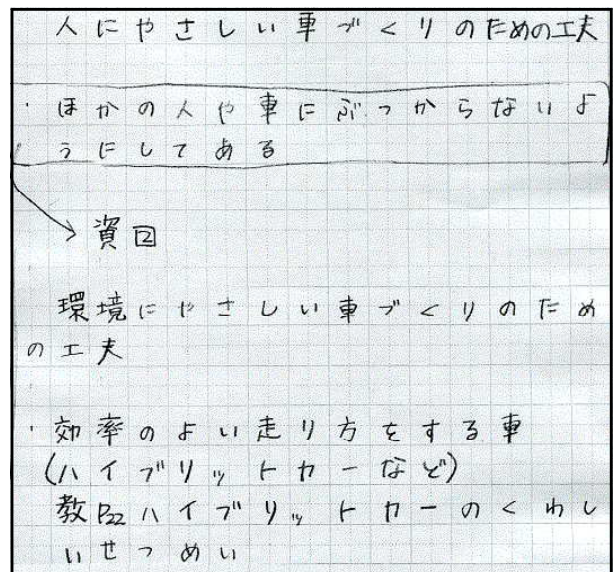 人にやさしい車づくりのための工夫
・ほかの人や車にぶつからないよ
うにしてある
→資2
環境にやさしい車づくりのため
の工夫
・効率のよい走り方をする車
(ハイブリットカーなど)
教P22ハイブリットカーのくわし
いせつめい